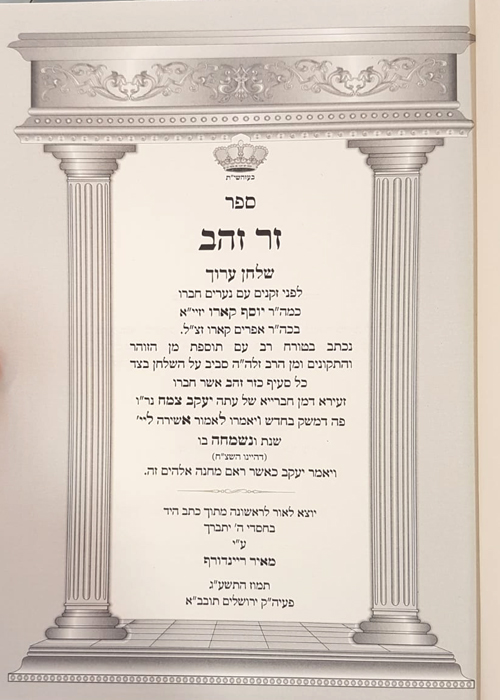 בעזהשי"ת
ספר
זר זהב
שלחן ערוך
לפני זקנים עם נערים חברו
כמה"ר יוסף קארו זיי"א
בכה"ר אפרים קארו זצ"ל.
נכתב בטורח רב עם תוספת מן הזוהר
והתקונים ומן הרב זלה"ה סביב על השלחן בצד
כל סעיף כזר זהב אשר חברו
זעירא דמן חברייא של עתה יעקב צמח נר"ו
פה דמשק בחדש ויאמרו לאמור אשירה ליי'
שנת ונשמחה בו
(דהיינו השצ"ח)
ויאמר יעקב כאשר ראם מחנה אלהים זה.
יוצא לאור לראשונה מתוך כתב היד
בחסדי ה' יתברך
ע"י
מאיר ריינדורף
תמוז התשע"ג
פעיה"ק ירושלים תובב"א